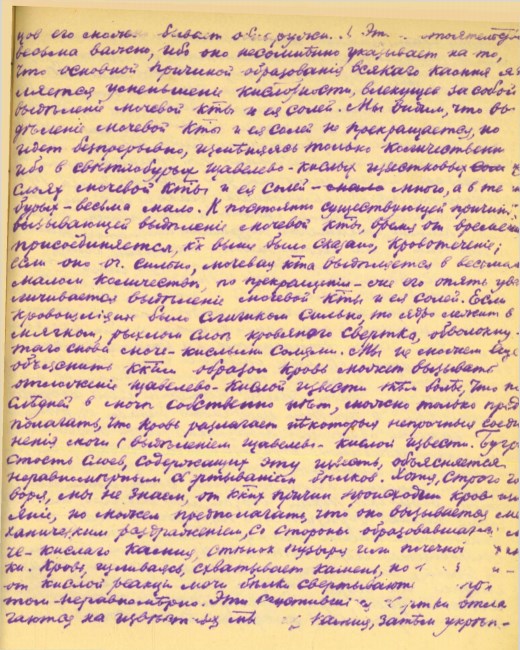 цов его можно бывает обнаружи
весьма важно, ибо оно несомнѣнно указывает на то,
что основной причиной образованiя всякаго камня яв
ляется уменьшенiе кислотности, влекущее за собой
выдѣленiе мочевой к-ты и ея солей. Мы видим, что вы
дѣленiе мочевой к-ты и ея солей не прекращается, но
идет безпрерывно, измѣняясь только количественно
ибо в свѣтлобурых щавелево-кислых известковых
слоях мочевой к-ты и ея солей - много, а в те
бурых - весьма мало. К постоянно существующей причинѣ,
вызывающей выдѣленiе мочевой к-ты, время от времени
присоединяется, кк выше было сказано, кровотеченiе;
если оно оч. сильно, мочевая к-та выдѣляется в весьма
малом количествѣ, по прекращенiи-же его опять уве
личивается выдѣленiе мочевой к-ты и ея солей. Если
кровоизлiянiе было слишком сильно, то ядро лежит в
мягком, рыхлом слоѣ кровяного свертка, обволокну
таго снова моче-кислыми солями. Мы не можем
объяснить ккм образом кровь может вызывать
отложенiе щавелево-кислой извести тѣм болѣе, что по
слѣдней в мочѣ собственно нѣт, можно только пред
полагать, что кровь разлагает нѣкоторыя непрочныя соеди
ненiя мочи с выдѣленiем щавелево-кислой извести. Бугри
стость слоев, содержащих эту известь, объясняется
неравномѣрным свертыванiем бѣлков. Хотя, строго го
воря, мы не знаем, от кких причин происходит кровоиз
лiянiе, но можем предполагать, что оно вызывается ме
ханическим раздраженiем, со стороны образовавшагося мо
че-кислаго камня, стѣнок пузыря или почечной
ки. Кровь, изливаясь, схватывает камень, но
от кислой реакцiи мочи бѣлки свертывают при
том-неравномѣрно. Эти сгустившiя свертки отла
гаются на камня, затѣм укрѣп-